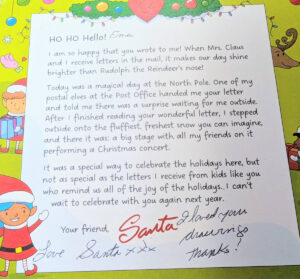 HO HO Hello! Ema
I am so happy that you wrote to me! When Mrs. Claus
and I receive letters in the mail, it makes our day shine
brighter than Rudolph the Reindeer's nose!
Today was a magical day at the North Pole. One of my
postal elves at the Post Office handed me your letter
and told me there was a surprise waiting for me outside.
After I finished reading your wonderful letter, I stepped
outside onto the fluffiest, freshest snow you can imagine,
and there it was: a big stage with all my friends on it
performing a Christmas concert.
It was a special way to celebrate the holidays here, but
not as special as the letters I receive from kids like you
who remind us all of the joy of the holidays. I can't
wait to celebrate with you again next year.
Your friend, Santa
I loved your
drawings
thanks!
Love Santa xxx